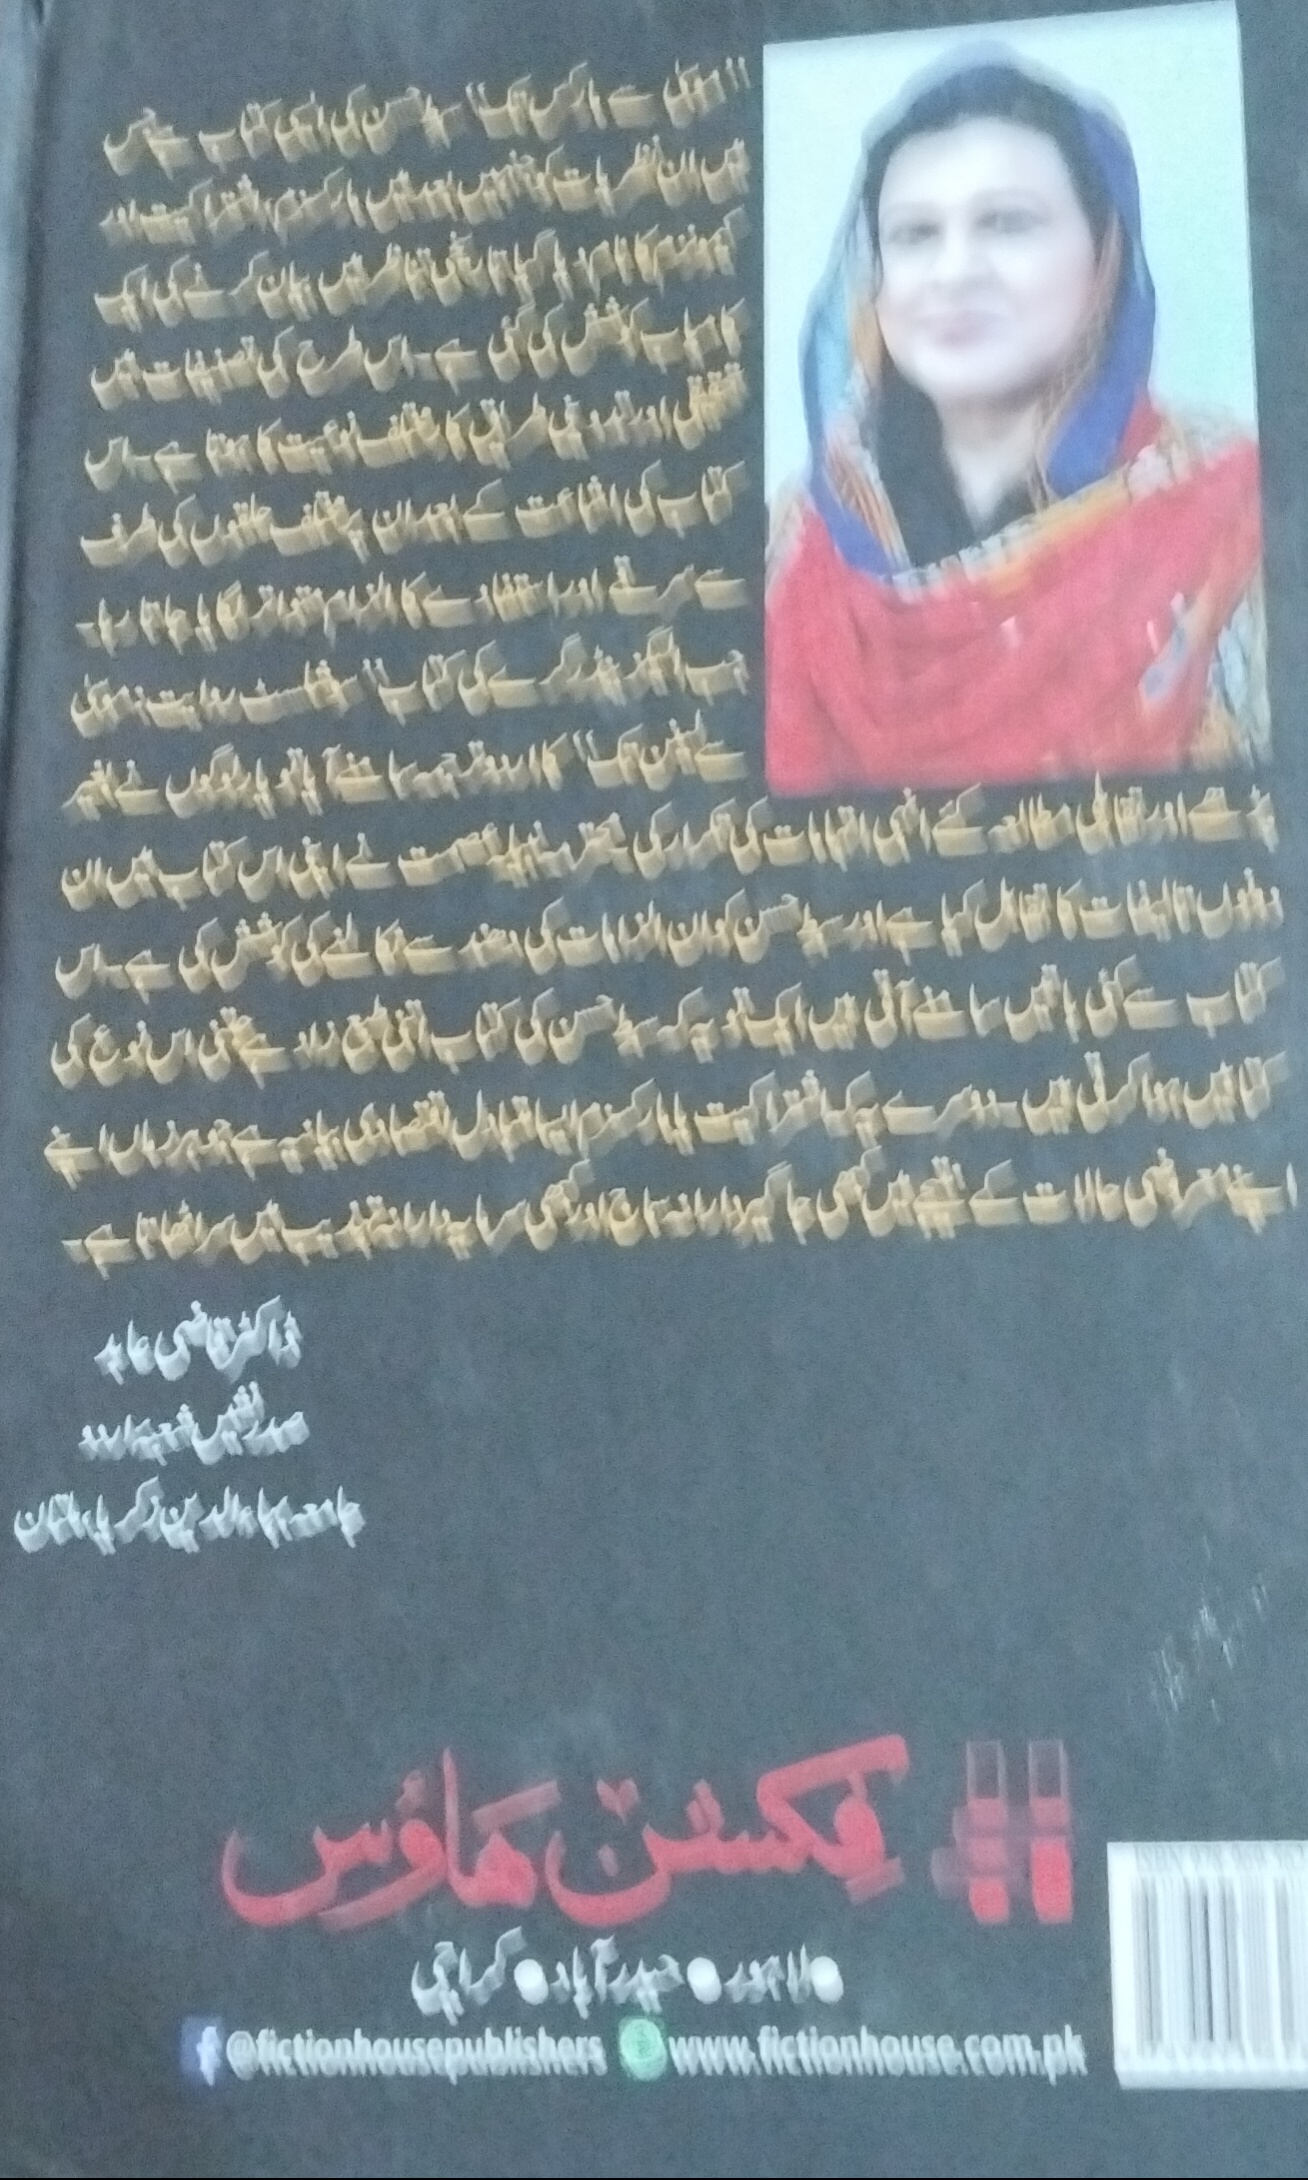 "موسیٰ سے مارکس تک" سبط حسن کی ایسی کتاب ہے جس
میں ان نظریات کو جنہیں بعد میں مارکسزم، اشتراکیت اور
کمیونزم کا نام دیا گیا تاریخی تناظر میں بیان کرنے کی ایک
کامیاب کوشش کی گئی ہے۔ اس طرح کی تصنیفات میں
تحقیقی اور تدوینی طریق کار مختلف نوعیت کا ہوتا ہے۔ اس
کتاب کی اشاعت کے بعد ان پر مختلف حلقوں کی طرف
سے سرقے اور استفادے کا الزام متواتر لگایا جاتا رہا۔
جب الیگزینڈر گرے کی کتاب "سوشلسٹ روایت: موسیٰ
سے لینن تک" کا اردو ترجمہ سامنے آیا تو یار لوگوں نے بغیر
پڑھے اور تقابلی مطالعہ کئے انہی اتہامات کی تکرار کی۔ محترمہ عصمت نے اپنی اس کتاب میں ان
دونوں تالیفات کا تقابل کیا ہے اور سبط حسن کو ان الزامات کی دھند سے نکالنے کی کوشش کی ہے۔ اس
کتاب سے کئی باتیں سامنے آتی ہیں ایک تو یہ کہ سبط حسن کی کتاب اتنی طبع زاد ہے جتنی اس نوع کی
کتابیں ہوا کرتی ہیں۔ دوسرے یہ کہ اشتراکیت یا مارکسزم ایسا متبادل اقتصادی بیانیہ ہے جو ہر زماں اپنے
اپنے معروضی حالات کے نتیجے میں کبھی جاگیردارانہ سماج اور کبھی سرمایہ دارانہ تہذیب میں سر اٹھاتا ہے۔
ڈاکٹر قاضی عابد
صدر نشیں شعبہ اردو
جامعہ بہاء الدین زکریا، ملتان
فکشن ہاؤس
●لاہور ●حیدرآباد ●کراچی
@fictionhousepublishers www.fictionhouse.com.pk